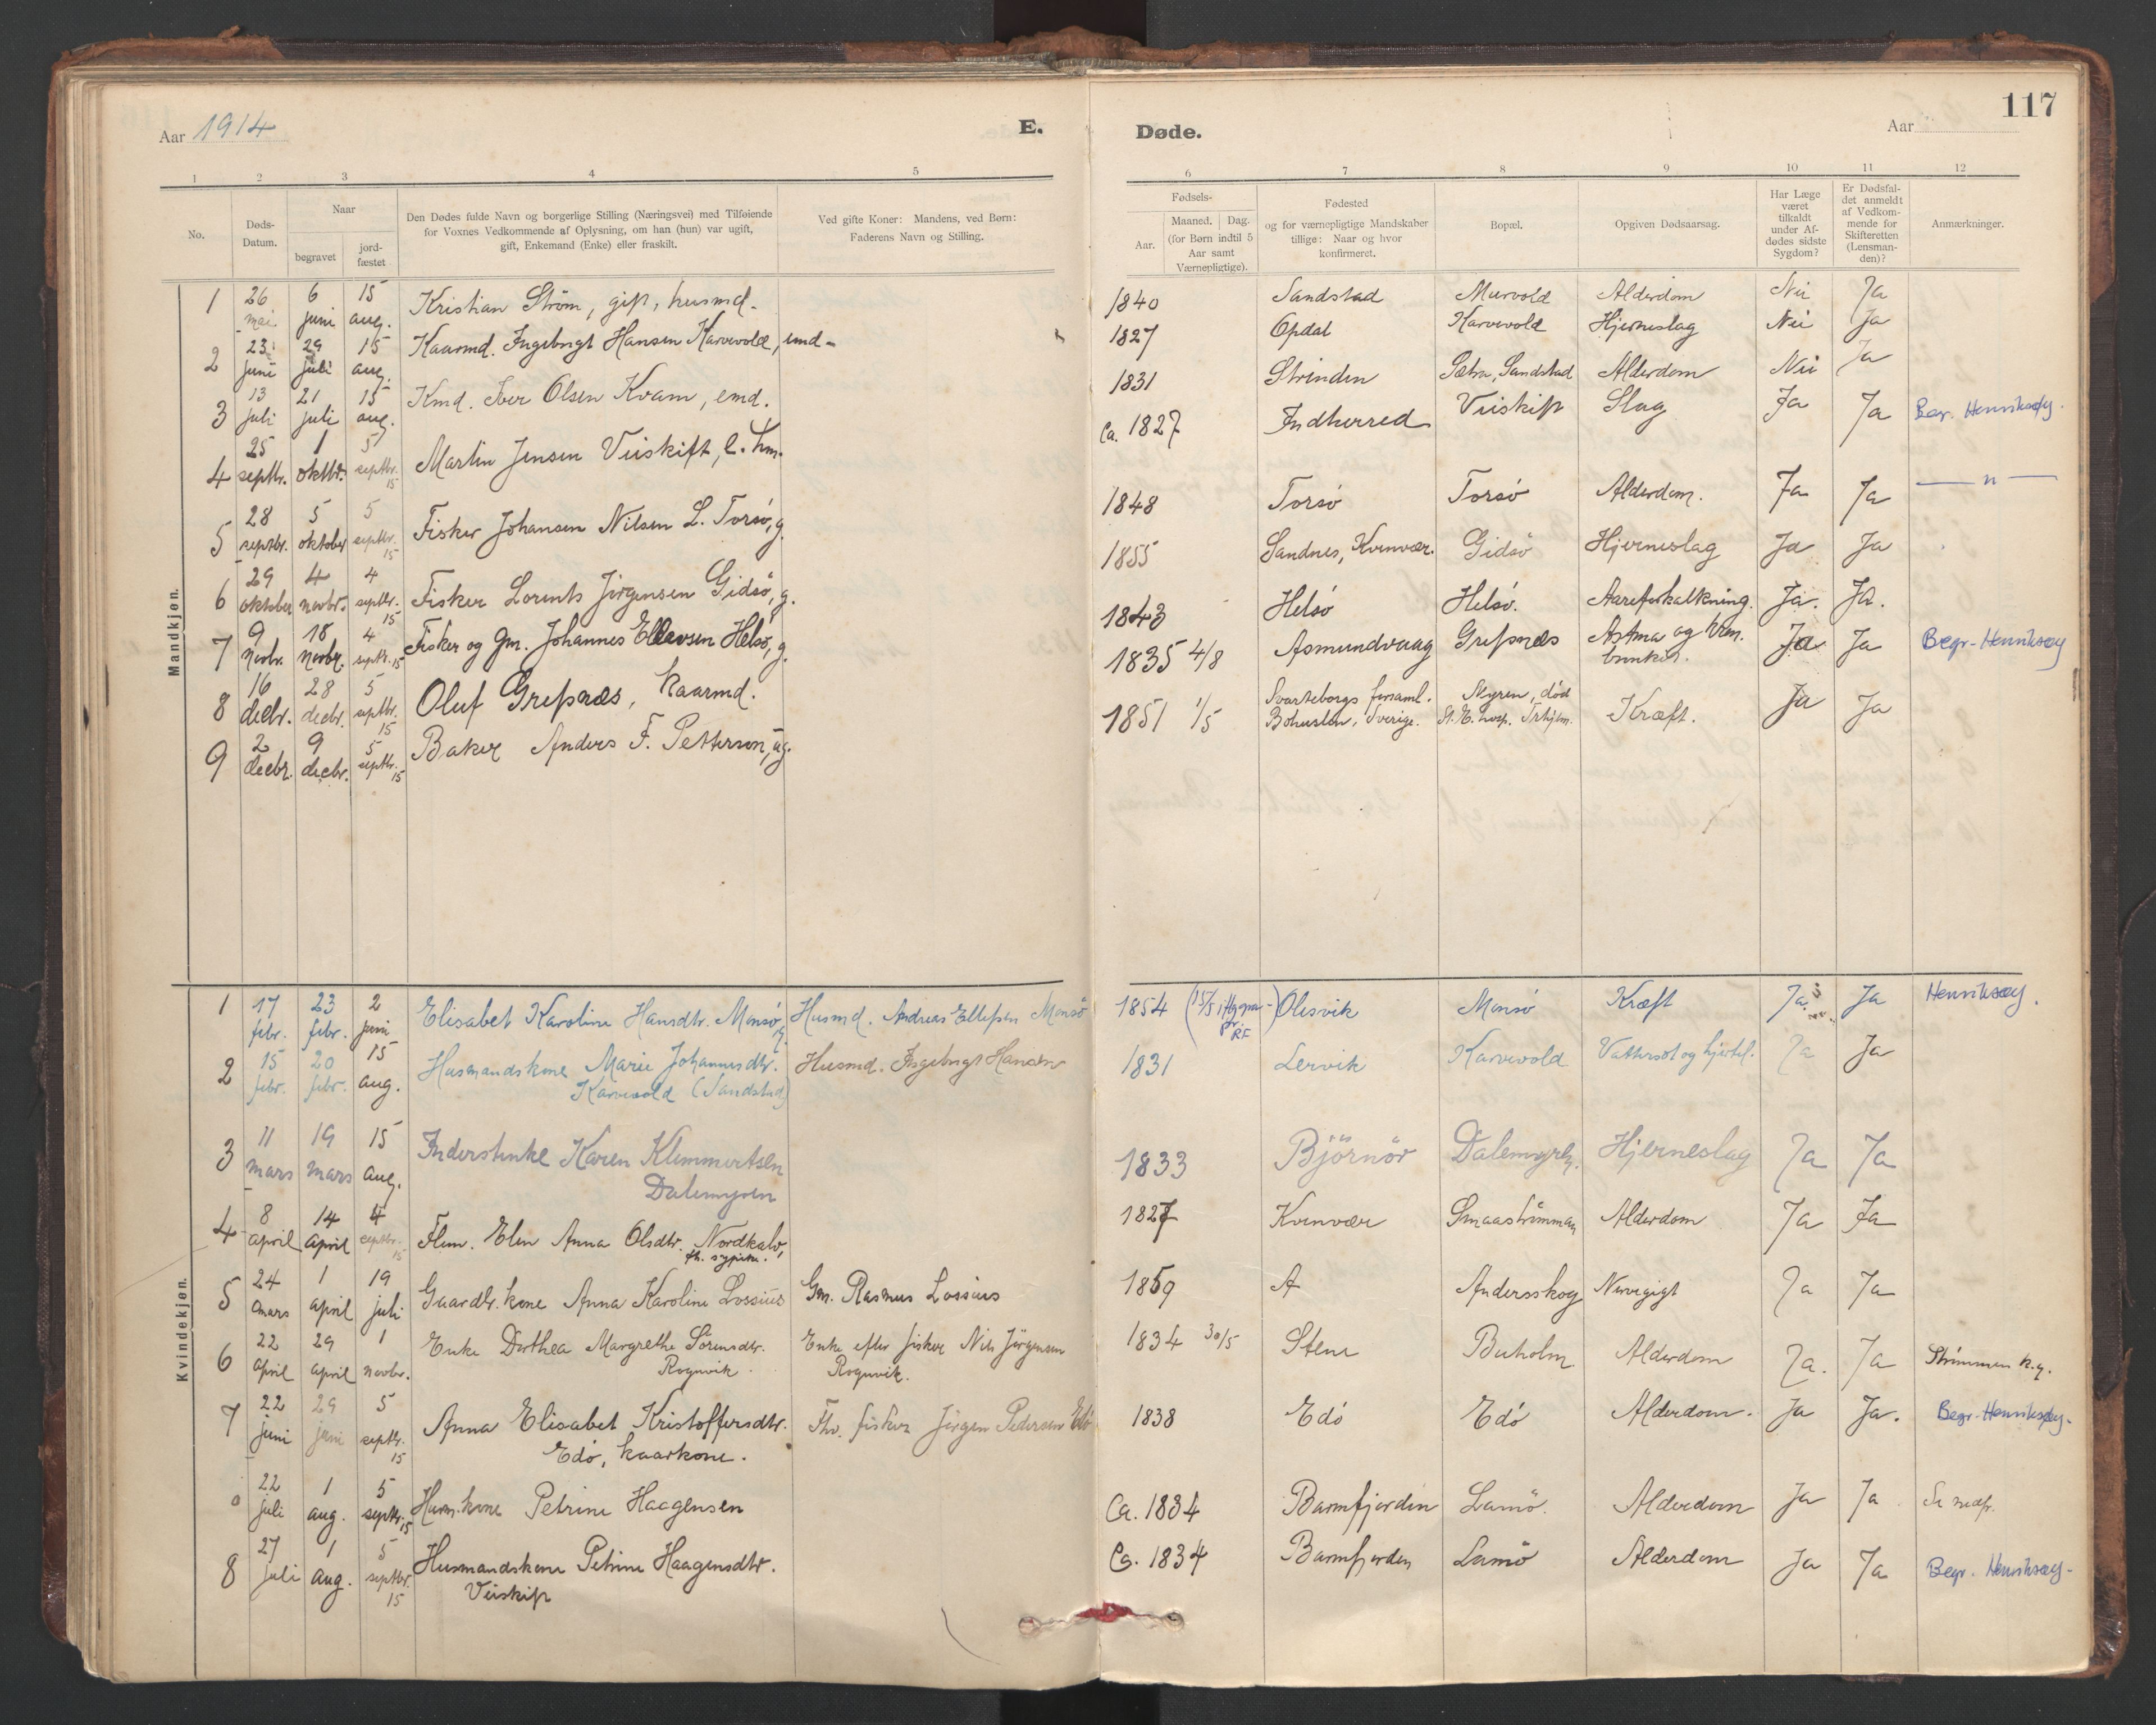 Aar 1914
E.
Døde.
Aar
117
1 2 3 4 5 6 7 8 9 10 11 12
No.
Døds-
Datum.
Naar
begravet
jord-
fæstet
Den Dødes fulde Navn og borgerlige Stilling (Næringsvei) med Tilføiende
for Voxnes Vedkommende af Oplysning, om han (hun) var ugift,
gift, Enkemand (Enke) eller fraskilt.
Ved gifte Koner: Mandens, ved Børn:
Faderens Navn og Stilling.
Fødsels-
Aar.
Maaned. Dag.
(for Børn indtil 5
Aar samt
Værnepligtige).
Fødested
og for værnepligtige Mandskaber
tillige: Naar og hvor
konfirmeret.
Bopæl.
Opgiven Dødsaarsag.
Har Læge
været
tilkaldt
under Af-
dødes sidste
Sygdom?
Er Dødsfal-
det anmeldt
af Vedkom-
mende for
Skifteretten
(Lensman-
den)?
Anmærkninger.
Mandkjøn.
1 26 mai 6 juni 15 aug. Kristian Ström, gift, husmd. 1840 Sandstad Murvold Alderdom Nei Ja
2 23 juni 29 juli 15 aug. Kaarmd. Ingebrigt Hansen Karvevold, emd- 1827 Opdal Karvevold Hjerneslag Nei Ja
3 13 juli 21 juli 15 aug. Kmd. Iver Olsen Kvam, emd. 1831 Strinden Sætra, Sandstad Alderdom Nei Ja
4 25 septbr. 1 oktbr. 5 septbr. 15 Martin Jensen Veiskift, l. hm. Ca. 1827 Indherred Veiskift Slag Ja Ja Begr. Henriksøy.
5 28 septbr. 5 oktober 5 septbr. 15 Fisker Johansen Nilsen L. Torsö, g. 1848 Torsö Torsö Alderdom. Ja Ja — " —
6 29 oktober 4 novbr. 4 septbr. 15 Fisker Lorents Jörgensen Gidsö, g. 1855 Sandnes, Kvenvær. Gidsö Hjerneslag Ja Ja
7 9 novbr. 18 novbr. 4 septbr. 15 Fisker og Gm. Johannes Ellevsen Helsö, g. 1843 Helsö Helsö. Aareforkalkning. Ja. Ja.
8 16 decbr. 28 decbr. 5 septbr. 15 Oluf Grefsnæs, kaarmd. 1835 4/8 Asmundvaag Grefsnæs Astma og
Ja Ja Begr. Henriksøy
9 2 decbr. 9 decbr. 5 septbr. 15 Baker Anders F. Petterson, ug. 1851 1/5 Svarteborgs forsaml.
Bohuslen, Sverige. Myren, död
St. E. hosp. Trhjem. Kræft. Ja Ja
Kvindekjøn.
1 17 febr. 23 febr. 2 juni Elisabet Karoline Hansdtr. Monsö, g. Husmd. Andreas Ellefsen Monsö 1854 Olesvik Monsö Kræft Ja Ja Henriksøy.
2 15 febr. 20 febr. 15 aug. Husmandskone Marie Johannesdtr. Husmd. Ingebrigt Hansen 1831 Lervik Karvevold Vattersot og hjertef. Ja Ja
Karvevold (Sandstad)
3 11 mars 19 mars 15 aug. Inderstenke Karen Klemmertsen 1833 Björnör Dalemyren. Hjerneslag Ja Ja
Dalemyren
4 8 april 14 april 4 septbr. 15 Elen Anna Olsdtr. Nordkalv, 1827 Kvenvær Smaaströmmen Alderdom Ja Ja
5 24 mars 1 april 19 juli Gaardbr. kone Anna Karoline Lossius Gm. Rasmus Lossius 1859 A Andersskog Nervegigt Ja Ja
6 22 april 29 april 1 novbr. Enke Dorthea Margrethe Sörensdtr. Enke efter fisker Nils Jörgensen 1834 30/5 Stene Buholm Alderdom Ja. Ja Strömmen k.g.
Rognvik. Rognvik.
7 22 juni 29 juni 5 septbr. 15 Anna Elisabet Kristoffersdtr. Fhv. fisker Jörgen Pedersen Edö 1838 Edö Edö Alderdom. Ja Ja. Begr. Henriksøy.
Edö, kaarkone.
0 22 juli 1 aug. 5 septbr. 15 Husm. kone Petrine Haagensen Ca. 1834 Barmfjorden Lamö. Alderdom Ja Ja Se nedf.
8 27 juli 1 aug. 5 septbr. 15 Husmandskone Petrine Haagensdtr. Ca. 1834 Barmfjorden Lamö Alderdom Ja Ja Begr. Henriksøy-
Veiskift